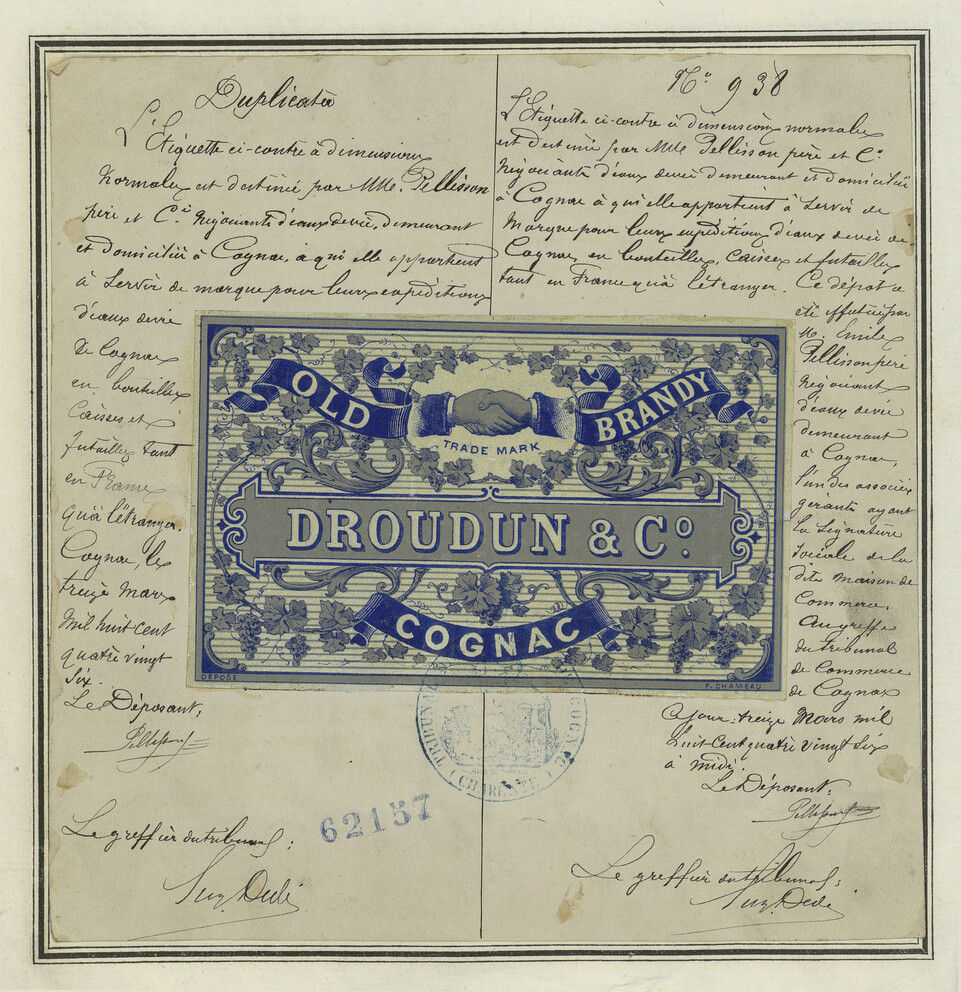 Duplicata
L'Etiquette ci-contre à dimensions
normales est destinée par MM. Pellisson
père et Cie Négociants d'eaux de vie, demeurant
et domiciliés à Cognac, à qui elle appartient
à servir de marque pour leurs expéditions
d'eaux de vie
de Cognac
en bouteilles
Caisses et
futailles tant
en France
qu'à l'étranger.
Cognac, le
treize Mars
Mil huit cent
quatre vingt
six.
Le Déposant,
Pellisson
Le greffier du tribunal:
N° 938
L'Etiquette ci-contre à dimensions normales
est destinée par MM. Pellisson père et Cie
Négociants d'eaux de vie demeurant et domiciliés
à Cognac à qui elle appartient à servir de
Marque pour leurs expéditions d'eaux de vie de
Cognac, en bouteilles, Caisses et futailles
tant en France qu'à l'étranger. Ce dépot a
été effectué par
M. Emile
Pellisson père
Négociant
d'eaux de vie
demeurant
à Cognac,
l'un des associés
gérants ayant
la signature
sociale de la
dite maison de
Commerce,
Au greffe
du tribunal
de Commerce
de Cognac
Ce jour treize Mars mil
huit Cent quatre vingt six
à midi.
Le Déposant:
Pellisson
Le greffier du tribunal:
OLD BRANDY
TRADE MARK
DROUDUN & Co.
COGNAC
DÉPOSÉ
F. CHAMEAU
TRIBUNAL COGNAC
(CHARENTE)
62157